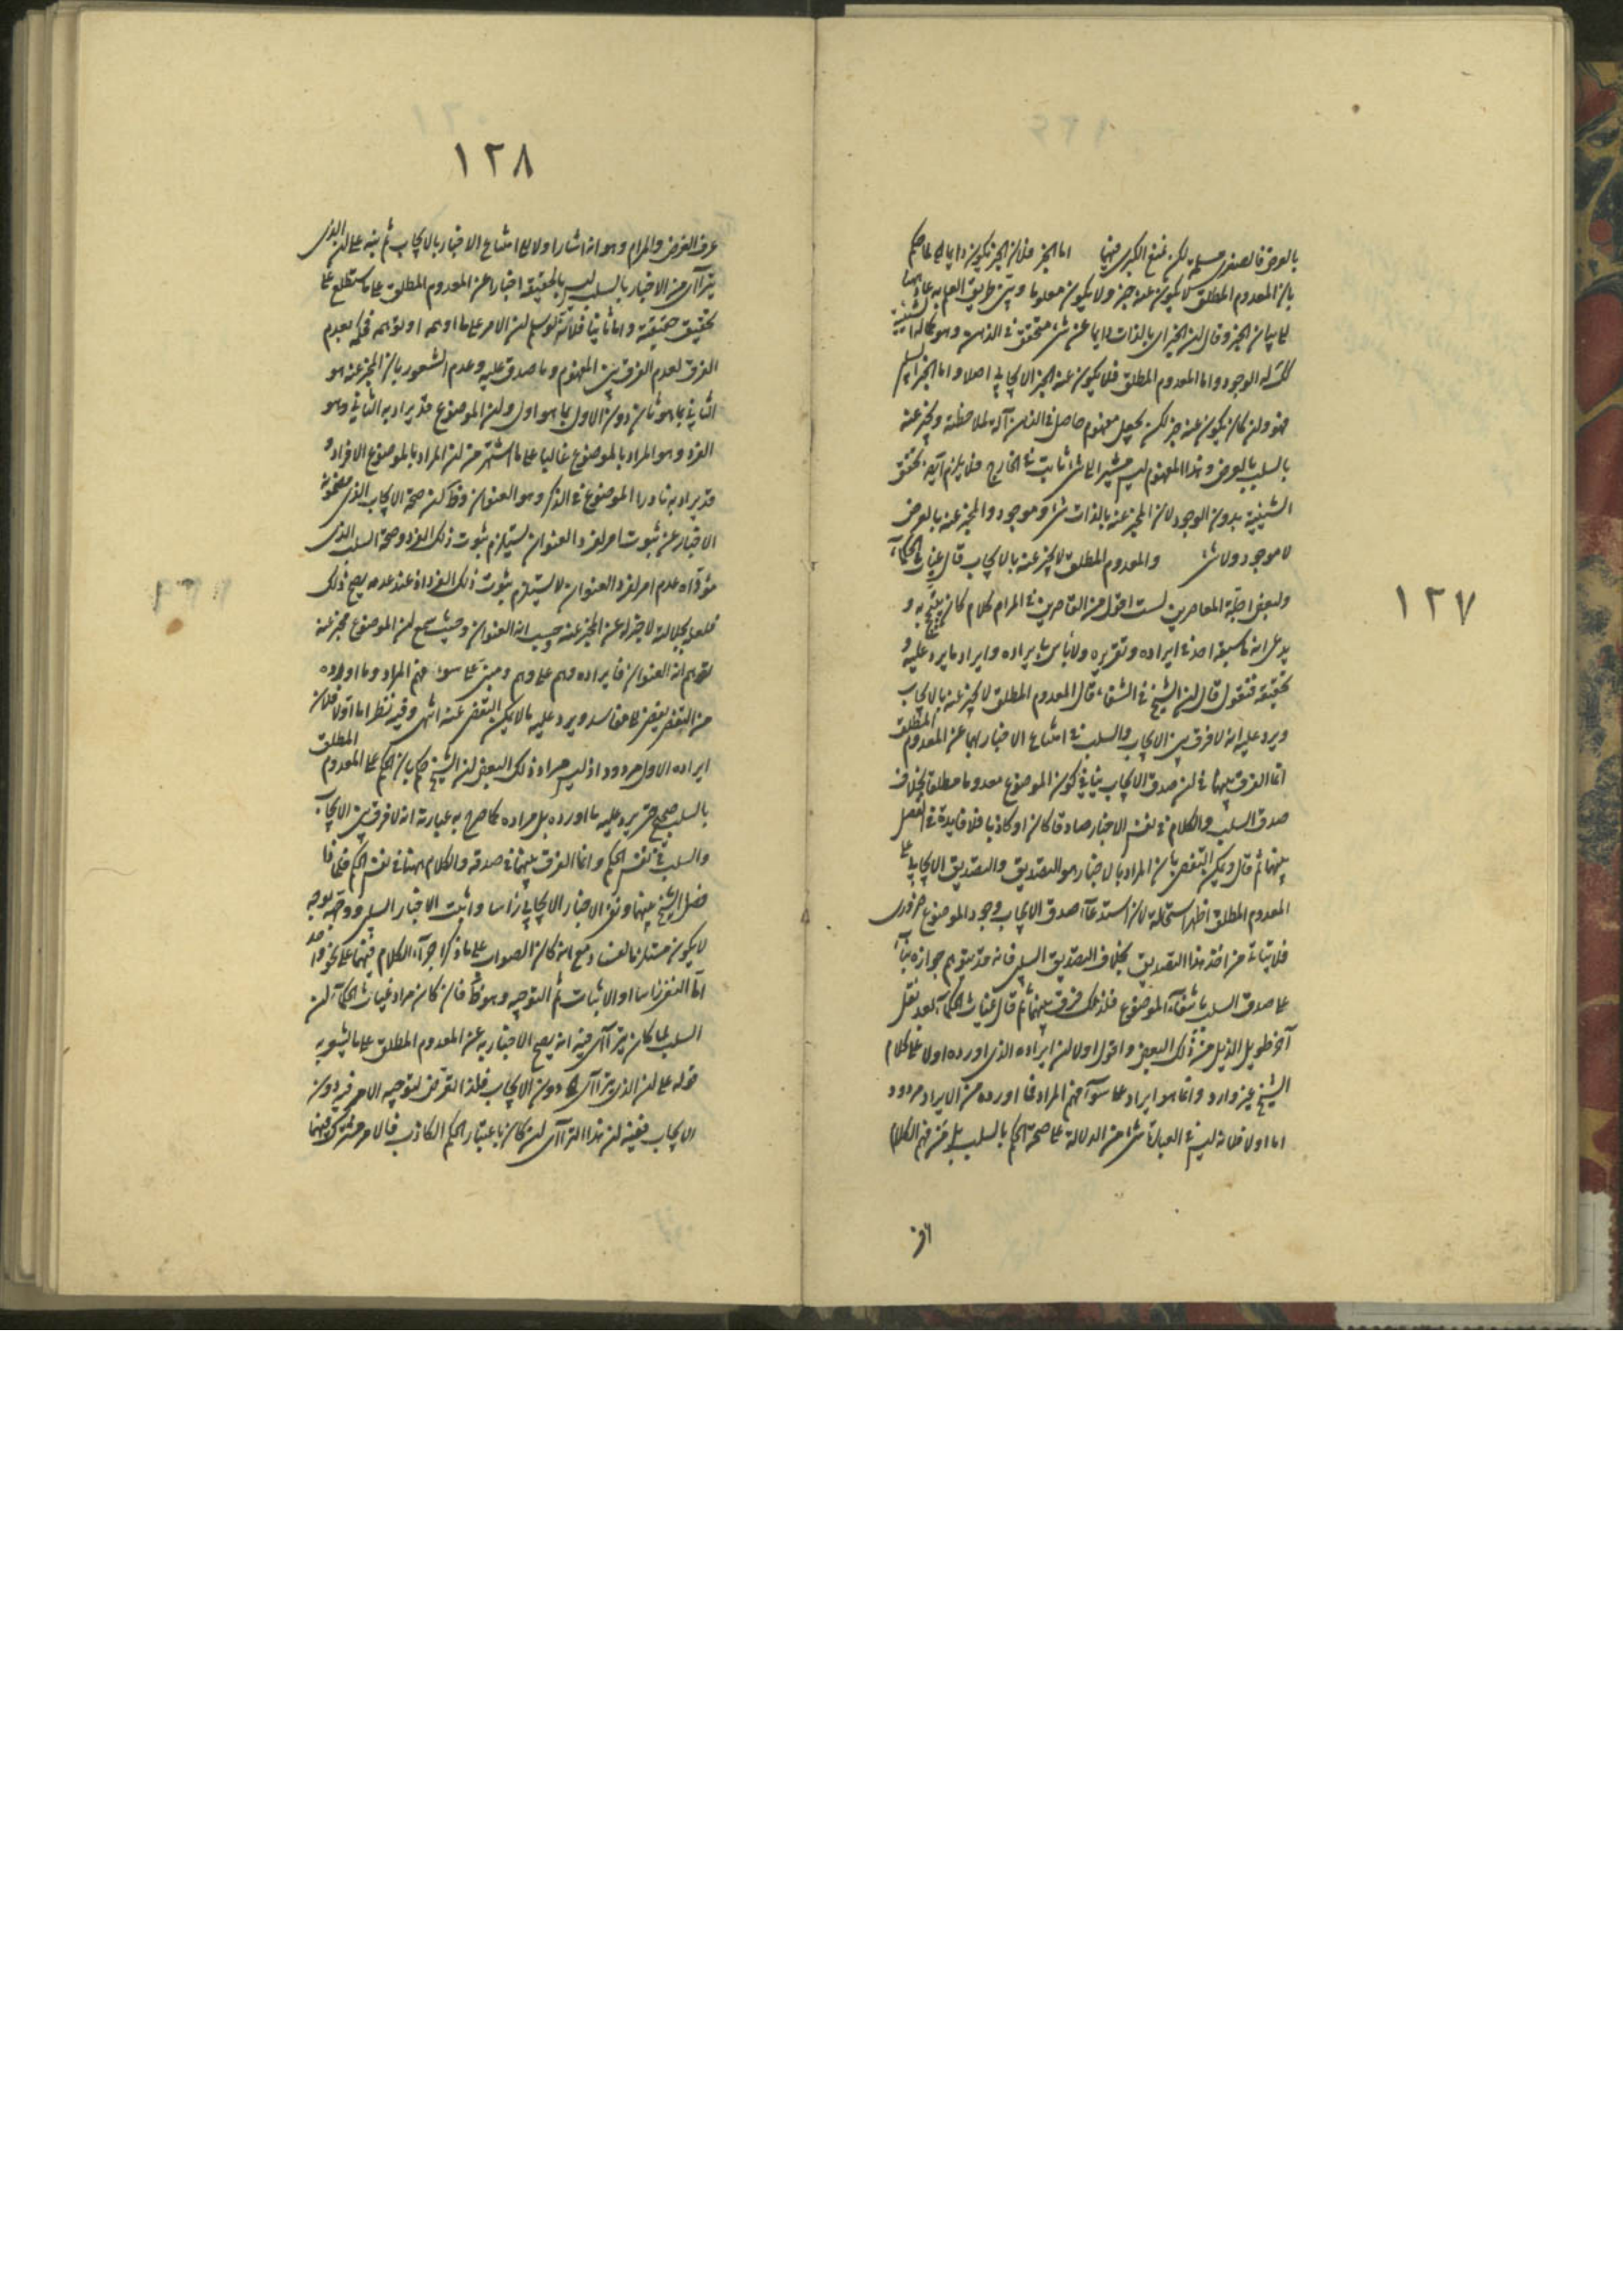 ١٢٧
بالعرض فالصغرى مسلمة لكن نمنع الكبرى فيهما اما الخبر فلان الخبر يكون دايما
بان المعدوم المطلق لا يكون عنه خبر ولا يكون معلوما وبين طريق العلم به
بيان الخبر وقال ان الخبر اى بالذات دايما عن شئ متحقق فى الذهن وهو
الوجود واما المعدوم المطلق فلا يكون عنه الخبر الايجابى اصلا واما الخبر السلبى
فهو وان كان يكون عنه خبر لكن يجعل مفهوم حاصل فى الذهن آلة لملاحظته ويخبر عنه
بالسلب بالعرض وهذا المفهوم ليس مشيرا الى شئ ثابت فى الخارج فلا يلزم تحقق
الشيئية بدون الوجود لان المخبر عنه بالذات شئ وموجود والمخبر عنه بالعرض
لا موجود ولا شئ والمعدوم المطلق لا يخبر عنه بالايجاب قال غياث الحكماء
ولبعض اجلة المعاصرين لست اقول من القاصرين فى المرام كلام كان يتبجح به و
يدعى انه ما سبقه احد فى ايراده وتقريره ولا باس بايراده وايراد ما يرد عليه و
تحقيقه فنقول قال ان الشيخ فى الشفاء قال المعدوم المطلق لا يخبر عنه بالايجاب
ويرد عليه انه لا فرق بين الايجاب والسلب فى امتناع الاخبار بهما عن المعدوم المطلق
انما الفرق بينهما فى ان صدق الايجاب ينافى كون الموضوع معدوما مطلقا بخلاف
صدق السلب والكلام فى نفس الاخبار صادقا كان او كاذبا فلا فايدة فى الفصل
بينهما ثم قال ويمكن التفصى بان المراد بالاخبار هو التصديق والتصديق الايجابى على
المعدوم المطلق اظهر استحالة لان استدعاء صدق الايجاب وجود الموضوع ضرورى
فلا يتاتى من احد هذا التصديق بخلاف التصديق السلبى فانه قد يتوهم جوازه بناء
على صدق السلب بانتفاء الموضوع فلذلك فرق بينهما ثم قال غياث الحكماء بعد نقل
آخر طويل الذيل من ذلك البعض واقول اولا ان ايراده الذى اورده اولا على كلام
الشيخ غير وارد وانما هو ايراد على سوء فهم المراد فما اورده من الايراد مردود
اما اولا فلانه ليس فى العبارة شئ من الدلالة على صحة الحكم بالسلب بل من فهم الكلام
١٢٨
عرف الغرض والمرام وهو انه اشار اولا الى امتناع الاخبار بالايجاب ثم نبه على ان الذى
يترآى من الاخبار بالسلب ليس بالحقيقة اخبارا عن المعدوم المطلق على ما ستطلع على
تحقيق حقيقته واما ثانيا فلانه لو سلم ان الامر على ما اوهم او توهم فحكمه بعدم
الفرق لعدم الفرق بين المفهوم وما صدق عليه وعدم الشعور بان المخبر عنه هو
الثانى بما هو ثان دون الاول بما هو اول وان الموضوع قد يراد به الثانى وهو
الفرد وهو المراد بالموضوع غالبا على ما اشتهر من ان المراد بالموضوع الافراد و
قد يراد به نادرا الموضوع فى الذكر وهو العنوان وظ لكن صحة الايجاب الذى مضمونه
الاخبار عن ثبوت امر لفرد العنوان يستلزم ثبوت ذلك الفرد وصحة السلب الذى
مؤداه عدم امر لفرد العنوان لا يستلزم ثبوت ذلك الفرد اذ عند عدمه يصح ذلك
فلعله لجلالته لا خبر له عن المخبر عنه وحسب انه العنوان وحيث سمع ان الموضوع مخبر عنه
توهم انه العنوان فايراده وهم على وهم ومبنى على سوء فهم المراد وما اورده
من التفصى على فاسد ويرد عليه ما لا يمكن التفصى عنه انتهى وفيه نظر اما اولا فلان
ايراده الاول مردود اذ ليس مراد ذلك البعض ان الشيخ حكم بان الحكم على المعدوم المطلق
بالسلب صحيح حتى يرد عليه ما اورده بل مراده كما صرح به عبارته انه لا فرق بين الايجاب
والسلب فى نفس الحكم وانما الفرق بينهما فى صدقه والكلام هيهنا فى نفس الحكم
فصل الشيخ بينهما ونفى الاخبار الايجابى راسا واثبت الاخبار السلبى ووجهه بوجه
لا يكون مستلزما لفساد مع انه كان الصواب على ما ذكر اجراء الكلام فيهما على نحو واحد
اما النفى راسا او الاثبات ثم التوجيه وهو ظ فان كان مراد غياث الحكماء ان
السلب لما كان يترآى فيه انه يصح الاخبار به عن المعدوم المطلق على ما يشعر به
قوله على ان الذى يترآى دون الايجاب فلذا تعرض لتوجيه الامر فيه دون
الايجاب ففيه ان هذا الترآى ان كان باعتبار الحكم الكاذب فالامر مشترك فيهما